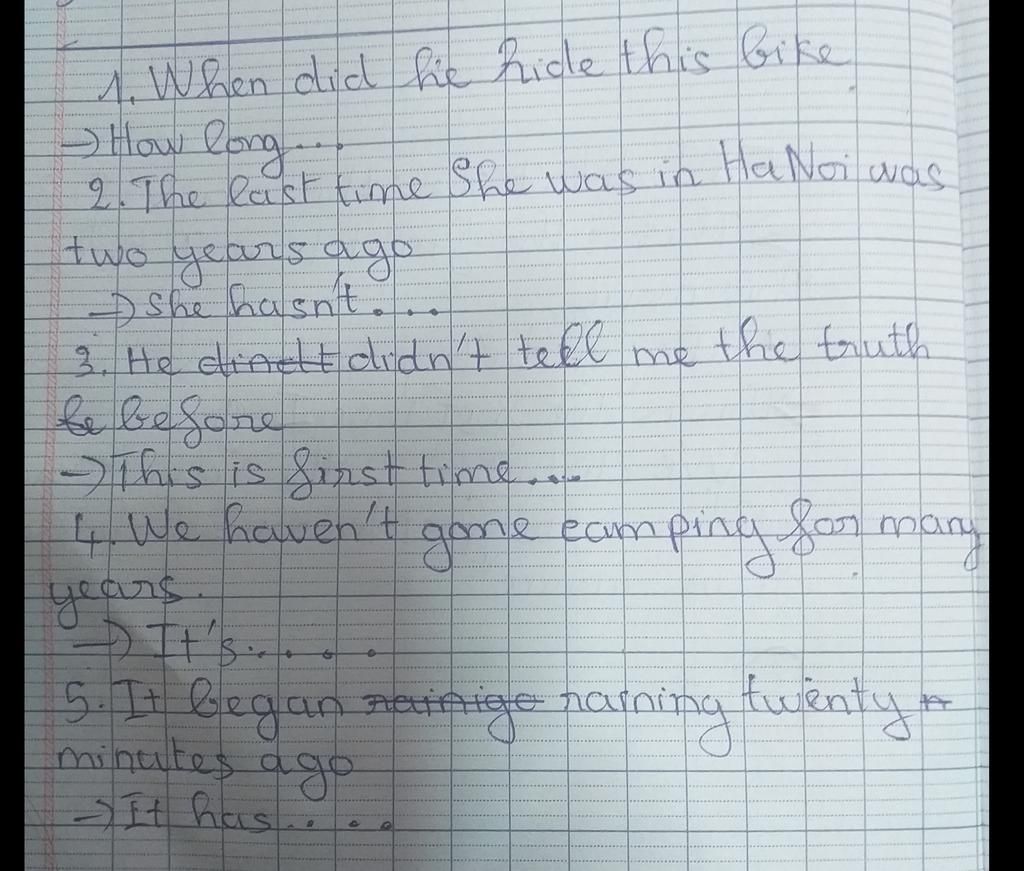 1. When did he ride this bike
→ How long...
2. The last time She was in HaNoi was
two years ago
→ She hasn't....
3. He didn't tell me the truth
before
→ This is first time....
4. We haven't gone camping for many
years.
→ It's.....
5. It began raining twenty
minutes ago
→ It has....